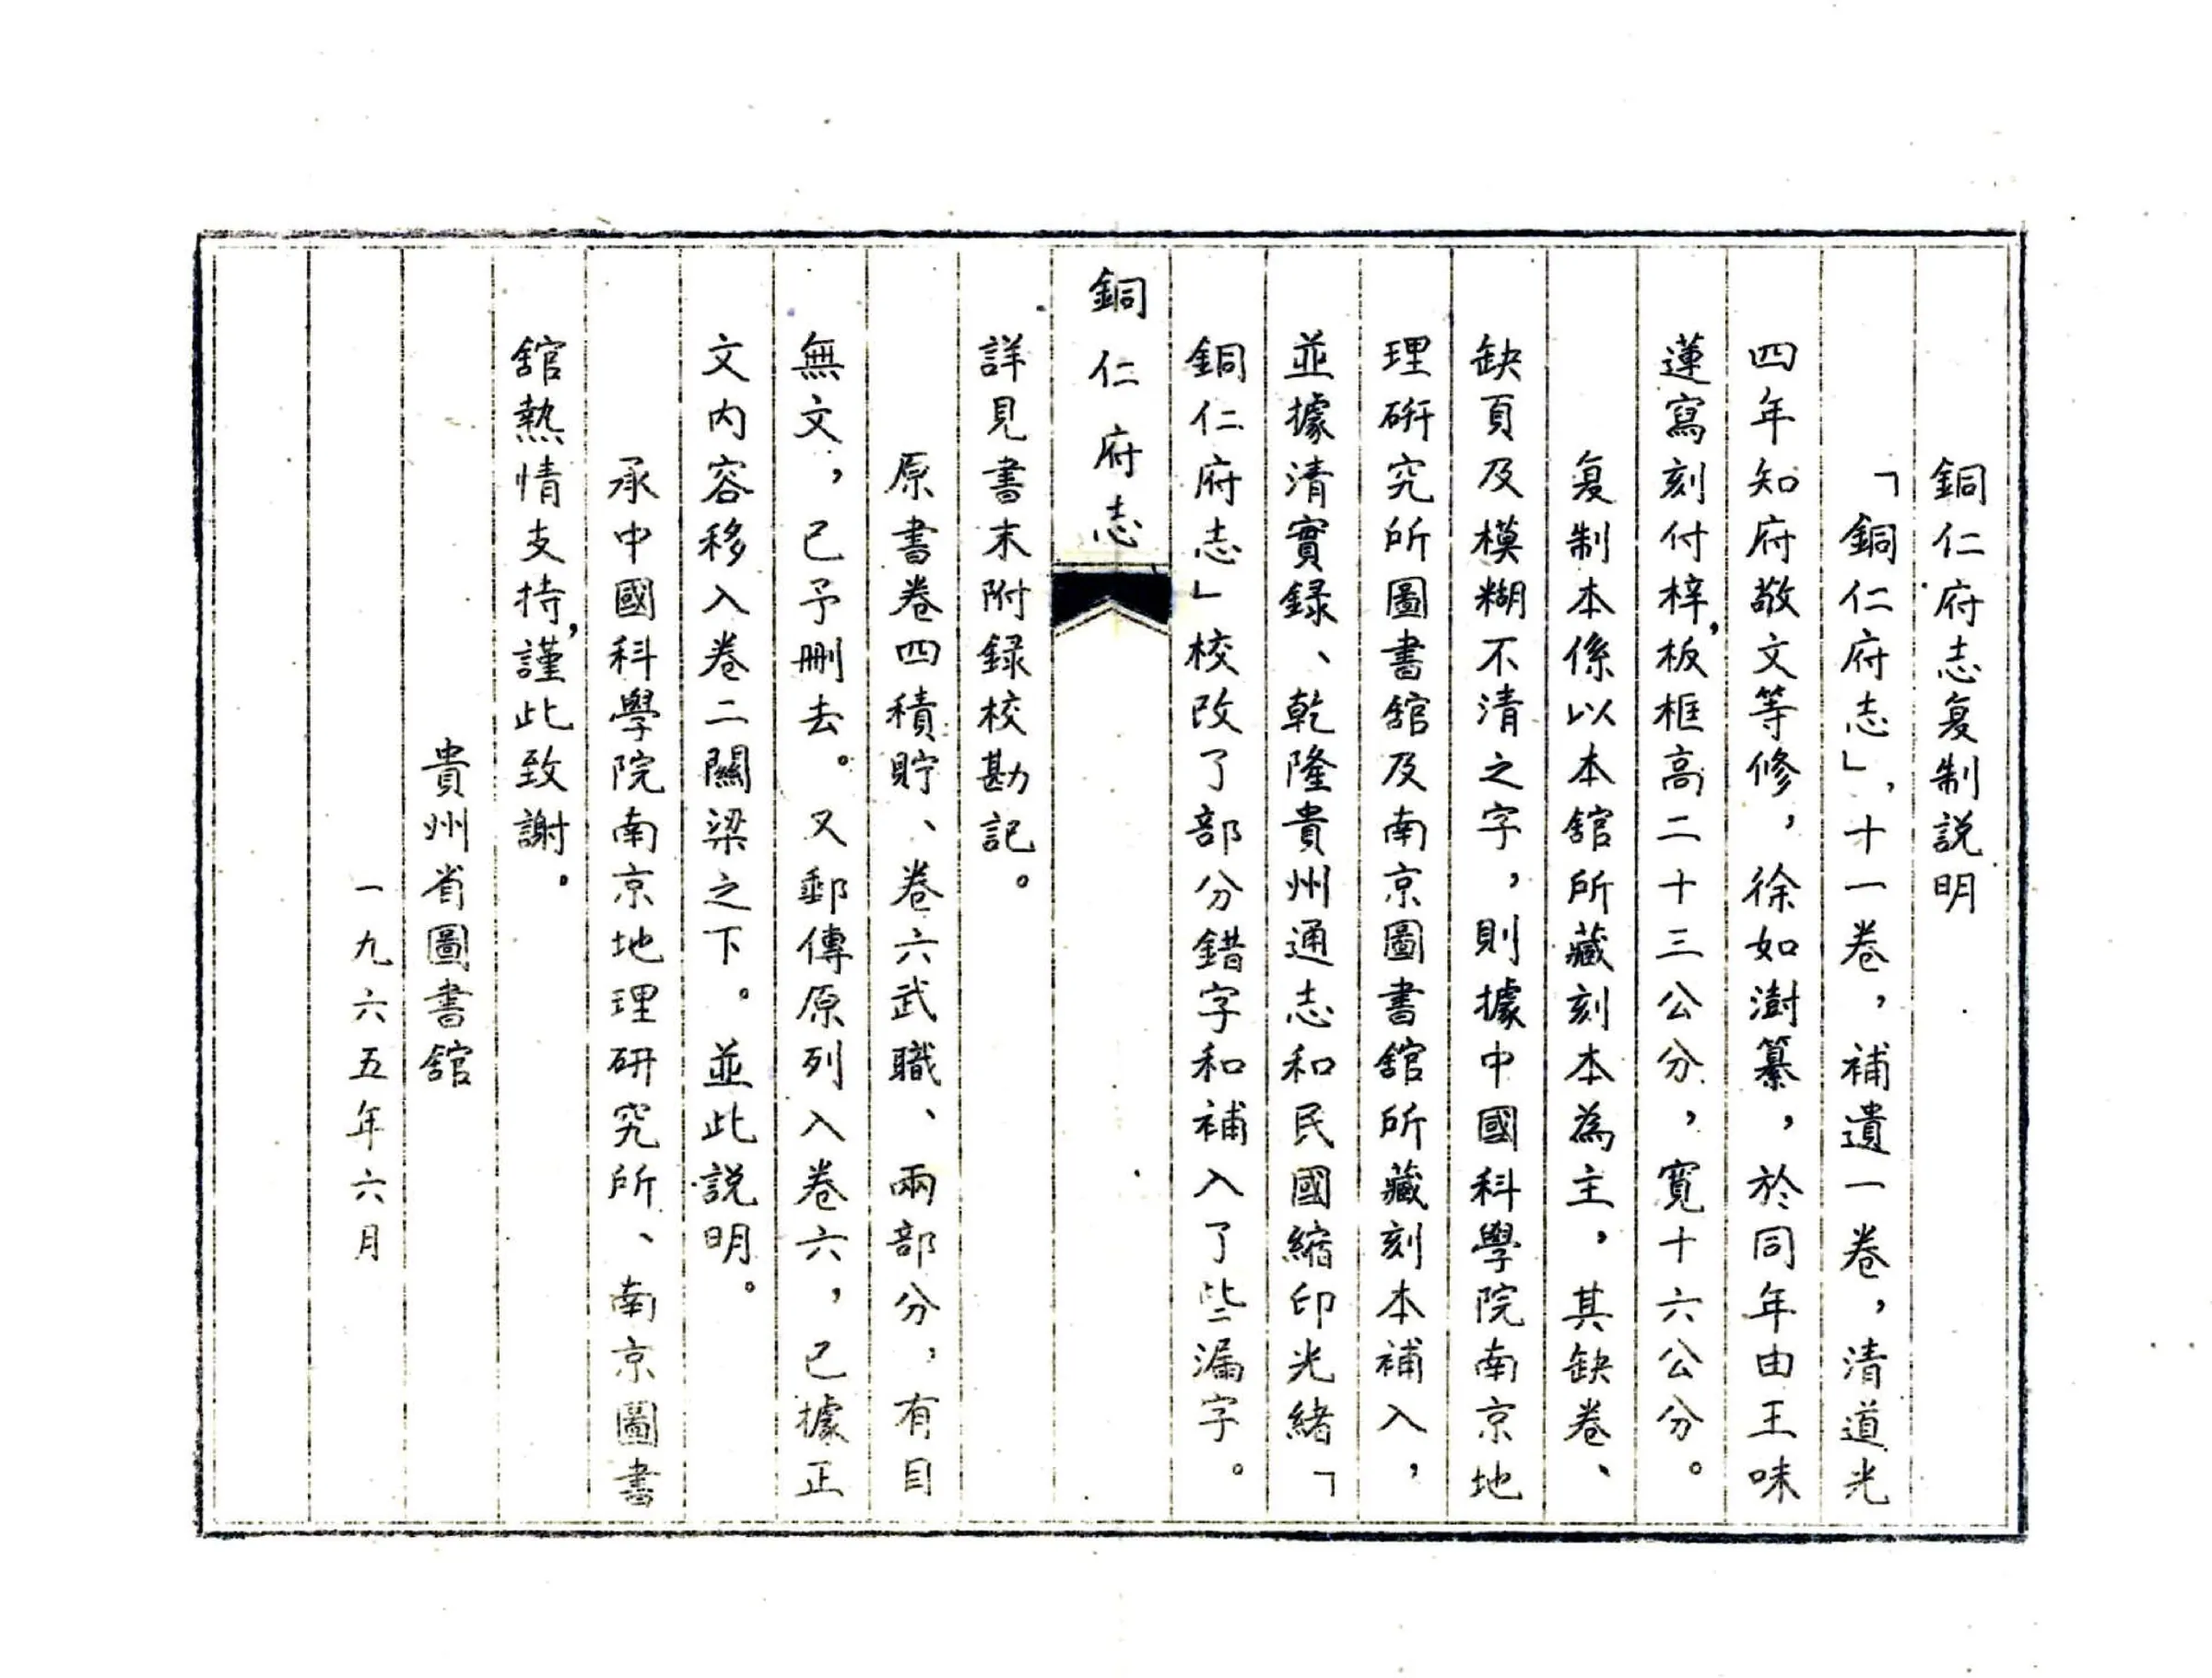 銅仁府志复制説明
「銅仁府志」，十一卷，補遺一卷，清道光
四年知府敬文等修，徐如澍纂，於同年由王味
蓮寫刻付梓，板框高二十三公分，寬十六公分。
复制本係以本舘所藏刻本為主，其缺卷、
缺頁及模糊不清之字，則據中國科學院南京地
理研究所圖書舘及南京圖書舘所藏刻本補入，
並據清實録、乾隆貴州通志和民國縮印光緒「
銅仁府志」校改了部分錯字和補入了些漏字。
銅仁府志
詳見書末附録校勘記。
原書卷四積貯、卷六武職、兩部分，有目
無文，已予刪去。又郵傳原列入卷六，已據正
文内容移入卷二關梁之下。並此説明。
承中國科學院南京地理研究所、南京圖書
舘熱情支持，謹此致謝。
貴州省圖書舘
一九六五年六月